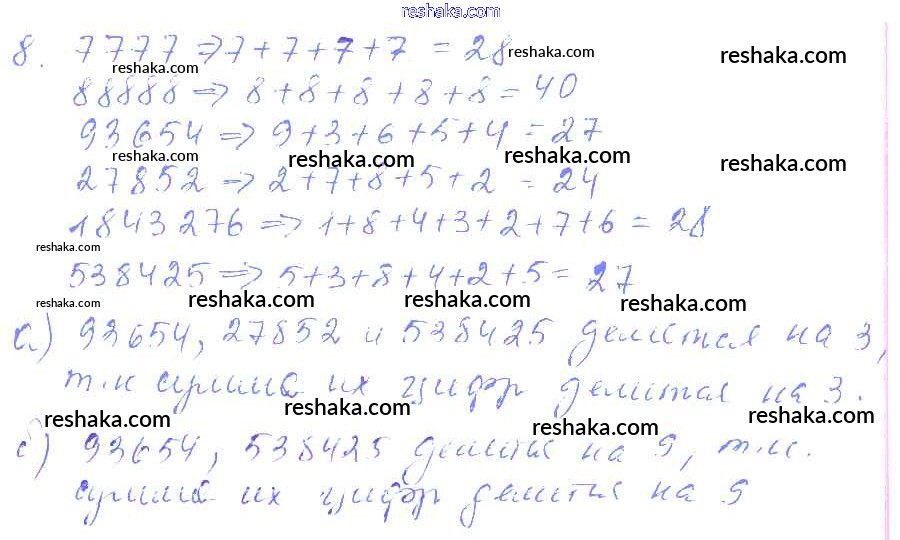 reshaka.com
8. 7777 => 7+7+7+7 = 28
reshaka.com reshaka.com reshaka.com
88888 => 8+8+8+8+8=40
93654 => 9+3+6+5+4=27
reshaka.com reshaka.com reshaka.com reshaka.com
27852 => 2+7+8+5+2 = 24
1843276 => 1+8+4+3+2+7+6 = 28
reshaka.com
538425 => 5+3+8+4+2+5=27
reshaka.com reshaka.com reshaka.com reshaka.com
а) 93654, 27852 и 538425 делится на 3,
т.к сумма их цифр делится на 3.
reshaka.com reshaka.com reshaka.com reshaka.com
б) 93654, 538425 делится на 9, т.к.
сумма их цифр делится на 9